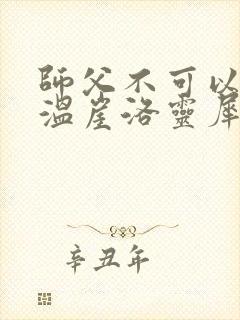 師父不可以
溫崖洛靈犀
辛丑年